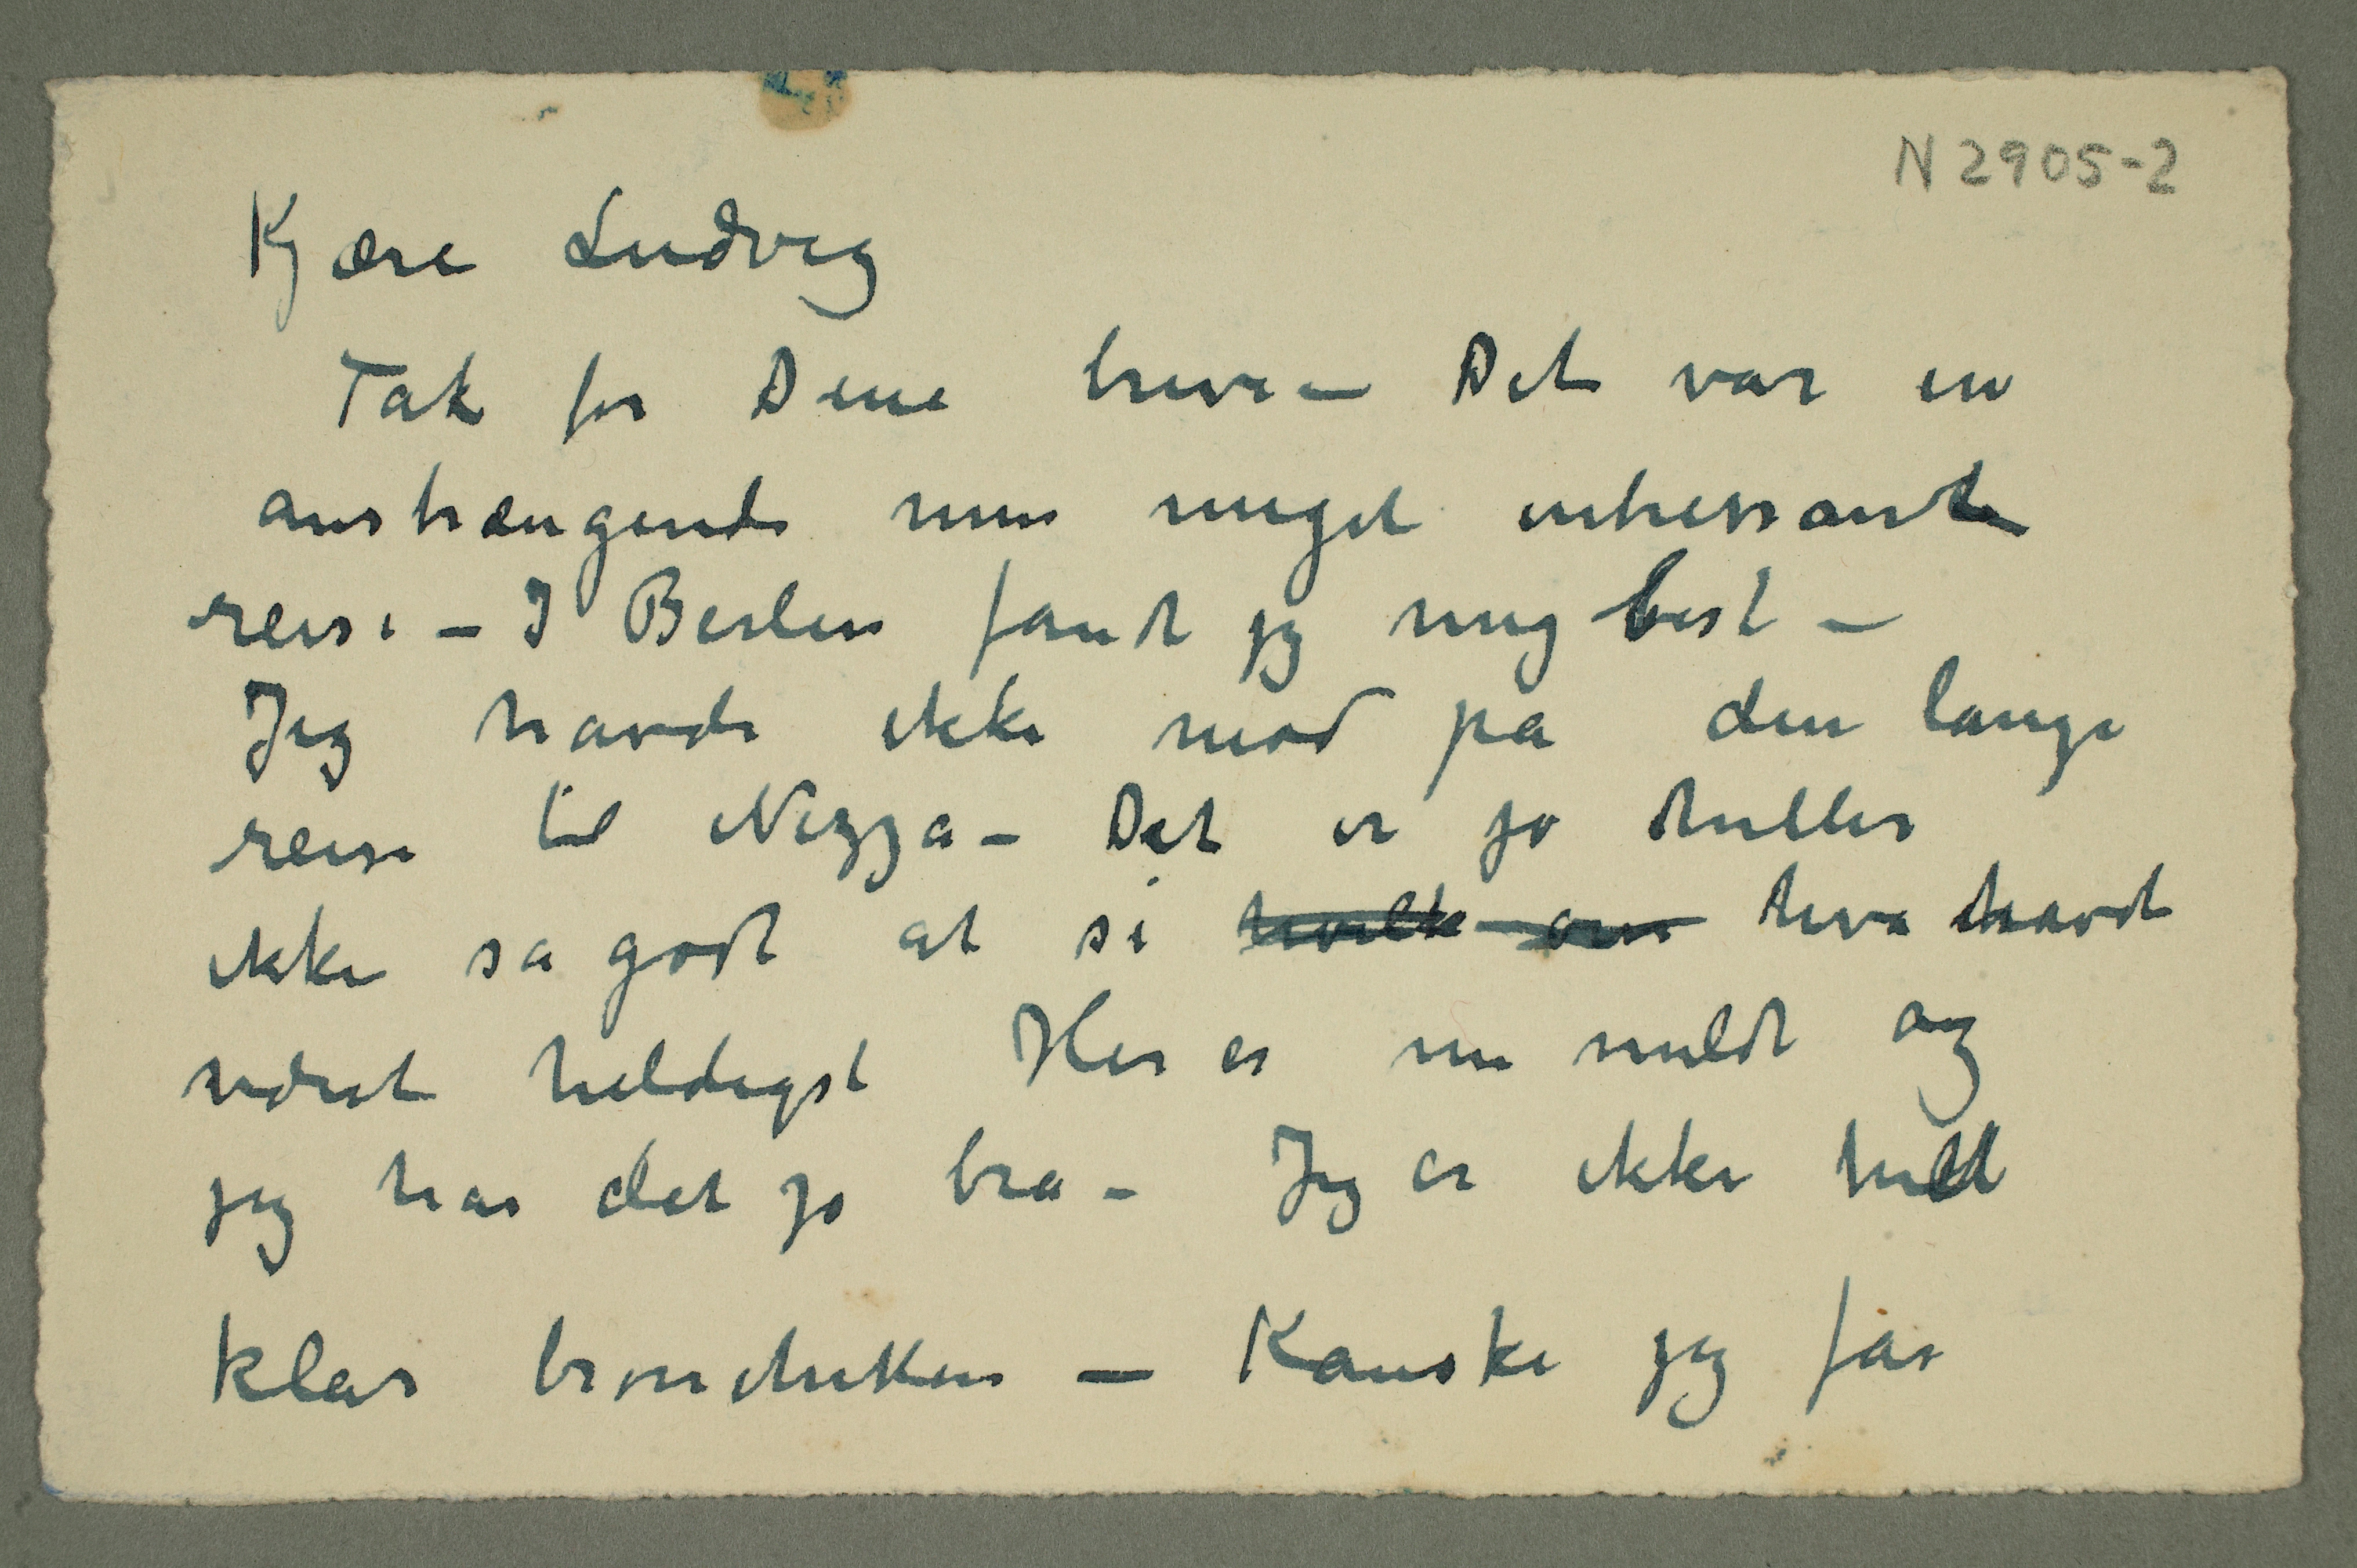 N 2905-2
Kjære Ludvig
Tak for Dine breve – Det var en
anstrængende men meget intressant
reise – I Berlin fandt jeg mig best –
Jeg havde ikke mod på den lange
reise til Nizza – Det er jo heller
ikke så godt at si ~~hvilke om~~ hva havde
været heldigst Her er nu mildt og
jeg har det jo bra – Jeg er ikke helt
klar bronchiken – Kanske jeg får